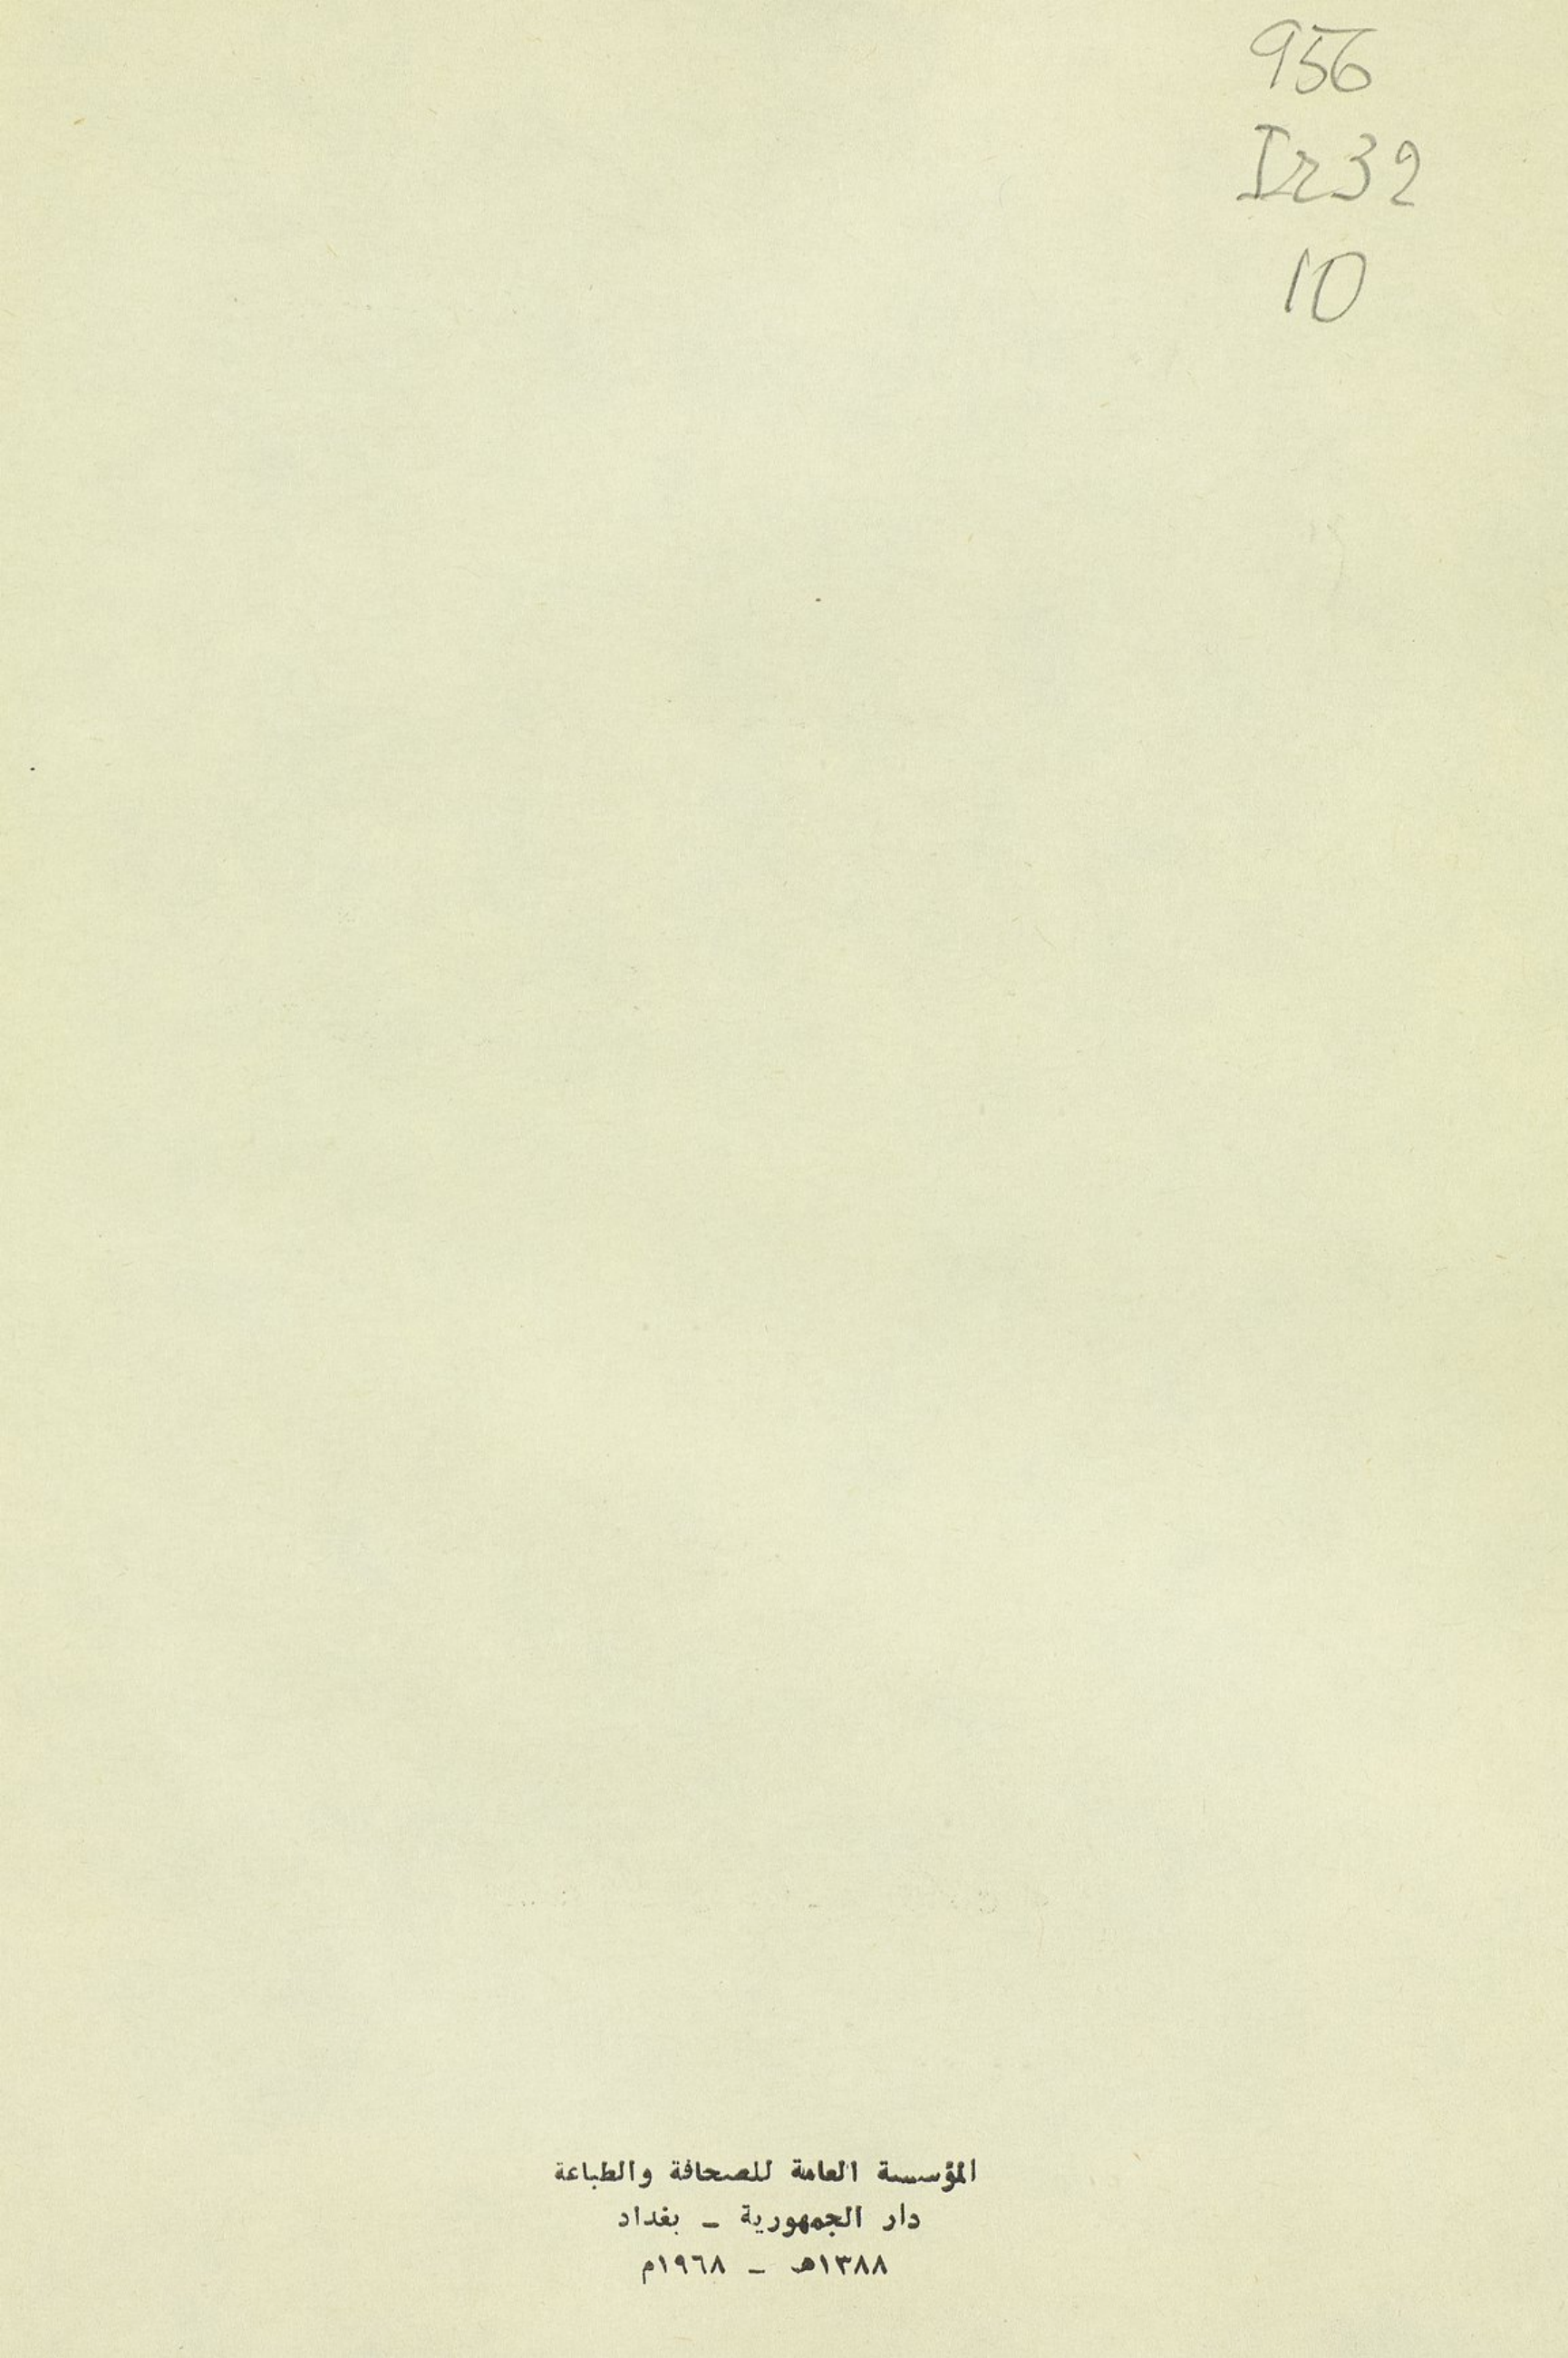 956
Ir32
10
المؤسسة العامة للصحافة والطباعة
دار الجمهورية ـ بغداد
١٣٨٨هـ ـ ١٩٦٨م